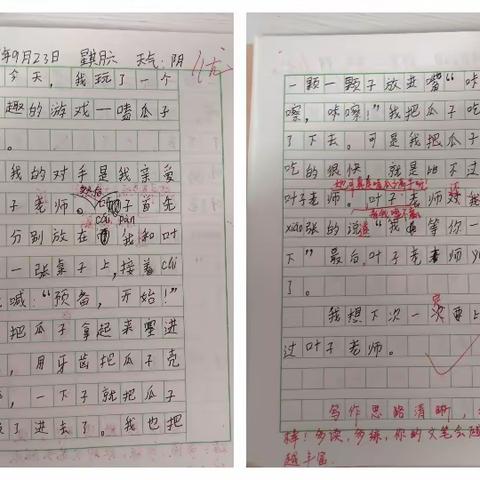 年9月23日 星期六 天气:阴
今天,我玩了一个
趣的游戏一嗑瓜子
。
我的对手是我亲爱
子老师。 子首先
cái pàn
分别放在 我和叶
一张桌子上,接着cái
喊:“预备,开始!”
把瓜子拿起来塞进
,用牙齿把瓜子壳
,一下子就把瓜子
了进去了。我也把
一颗一颗子放进嘴“咔
嚓,咔嚓!”我把瓜子吃
了下去。可是我把瓜子
吃的很快 就是比不过
叶子老师。叶子老师还
xiāo张的说“我 等你一
下”最后,叶子老师
了。
我想下次一定要比
过叶子老师。
写作思路清晰,
棒!多读,多练,你的文笔会
越丰富